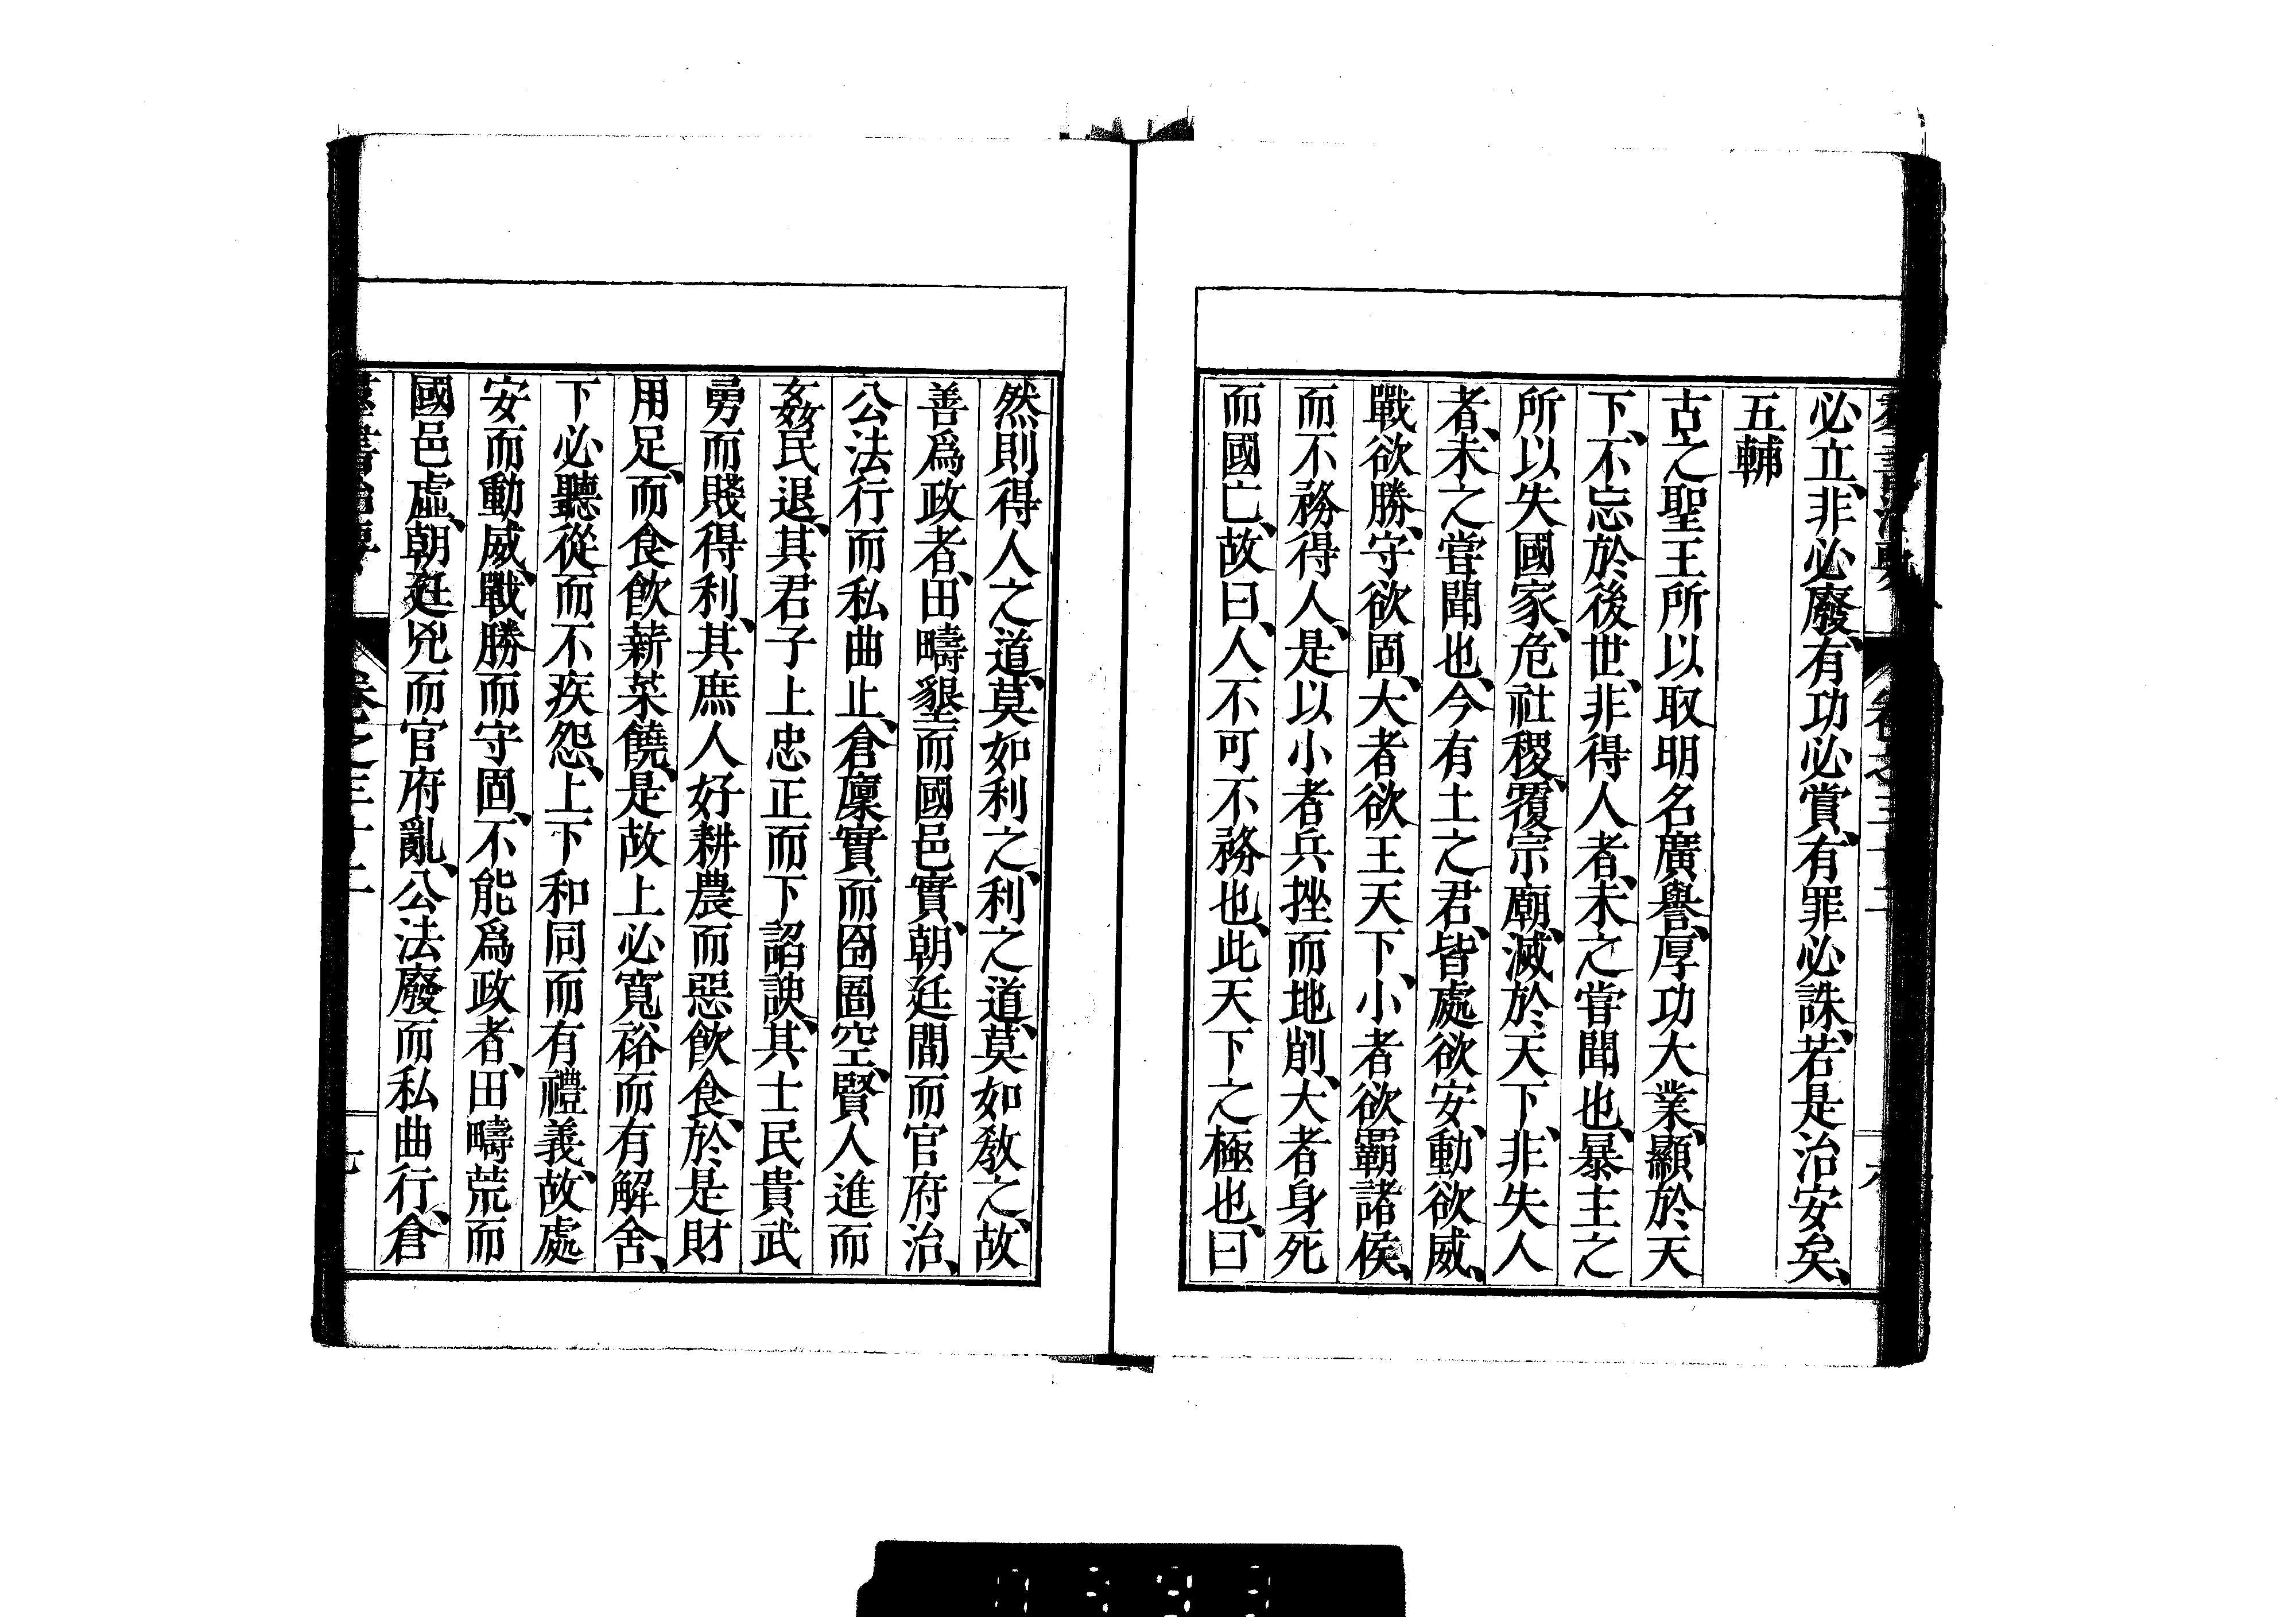 必立、非必廢、有功必賞、有罪必誅、若是治安矣、
五輔
古之聖王所以取明名廣譽、厚功大業、顯於天
下、不忘於後世、非得人者、未之嘗聞也、暴主之
所以失國家、危社稷、覆宗廟、滅於天下、非失人
者、未之嘗聞也、今有土之君、皆處欲安、動欲威、
戰欲勝、守欲固、大者欲王天下、小者欲霸諸侯、
而不務得人、是以小者兵挫而地削、大者身死
而國亡、故曰、人不可不務也、此天下之極也、曰
然則得人之道、莫如利之、利之道、莫如教之、故
善爲政者、田疇墾而國邑實、朝廷閒而官府治、
公法行而私曲止、倉廩實而囹圄空、賢人進而
姦民退、其君子上忠正而下諂諛、其士民貴武
勇而賤得利、其庶人好耕農而惡飲食、於是財
用足、而食飲薪菜饒、是故上必寬裕而有解舍、
下必聽從而不疾怨、上下和同而有禮義、故處
安而動威、戰勝而守固、不能爲政者、田疇荒而
國邑虛、朝廷兇而官府亂、公法廢而私曲行、倉